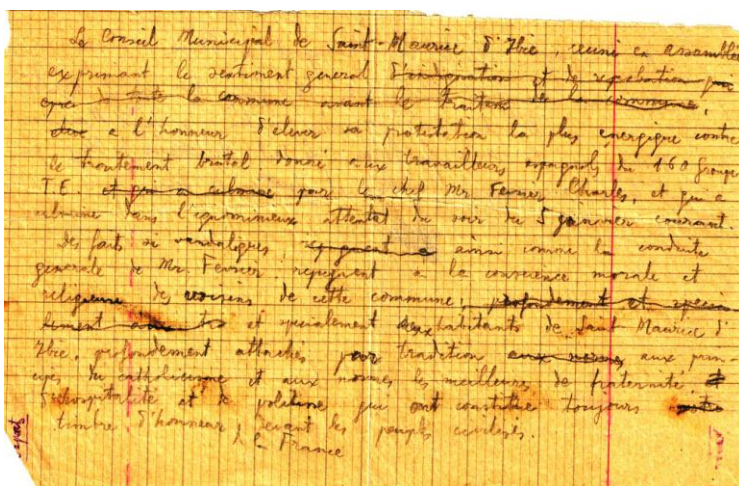 Le Conseil Municipal de Saint-Maurice d'Ibie, reuni en assemblée
exprimant le sentiment general d'indignation et de reprobation
de toute la commune avant le de la commune,
a l'honneur d'elever sa protestation la plus energique contre
le traitement brutal donné aux travailleurs espagnols du 160 Groupe
T.E. et qui a culminé par le chef Mr Fevrier Charles, et qui a
culminé dans l'ignominieux attentat du soir du 5 janvier courant.
Des faits si vandaliques repugnent a ainsi comme la conduite
generale de Mr. Fevrier, repugnent a la conscience morale et
religieuse des voisins de cette commune, profondement et specia
lement et specialement aux habitants de Saint Maurice d'
Ibie, profondement attachés par tradition aux normes aux prin-
cipes du catholicisme et aux normes les meilleurs de fraternité
d'hospitalité et de politesse qui ont constitué toujours
timbre d'honneur devant les peuples civilisés.
à La France